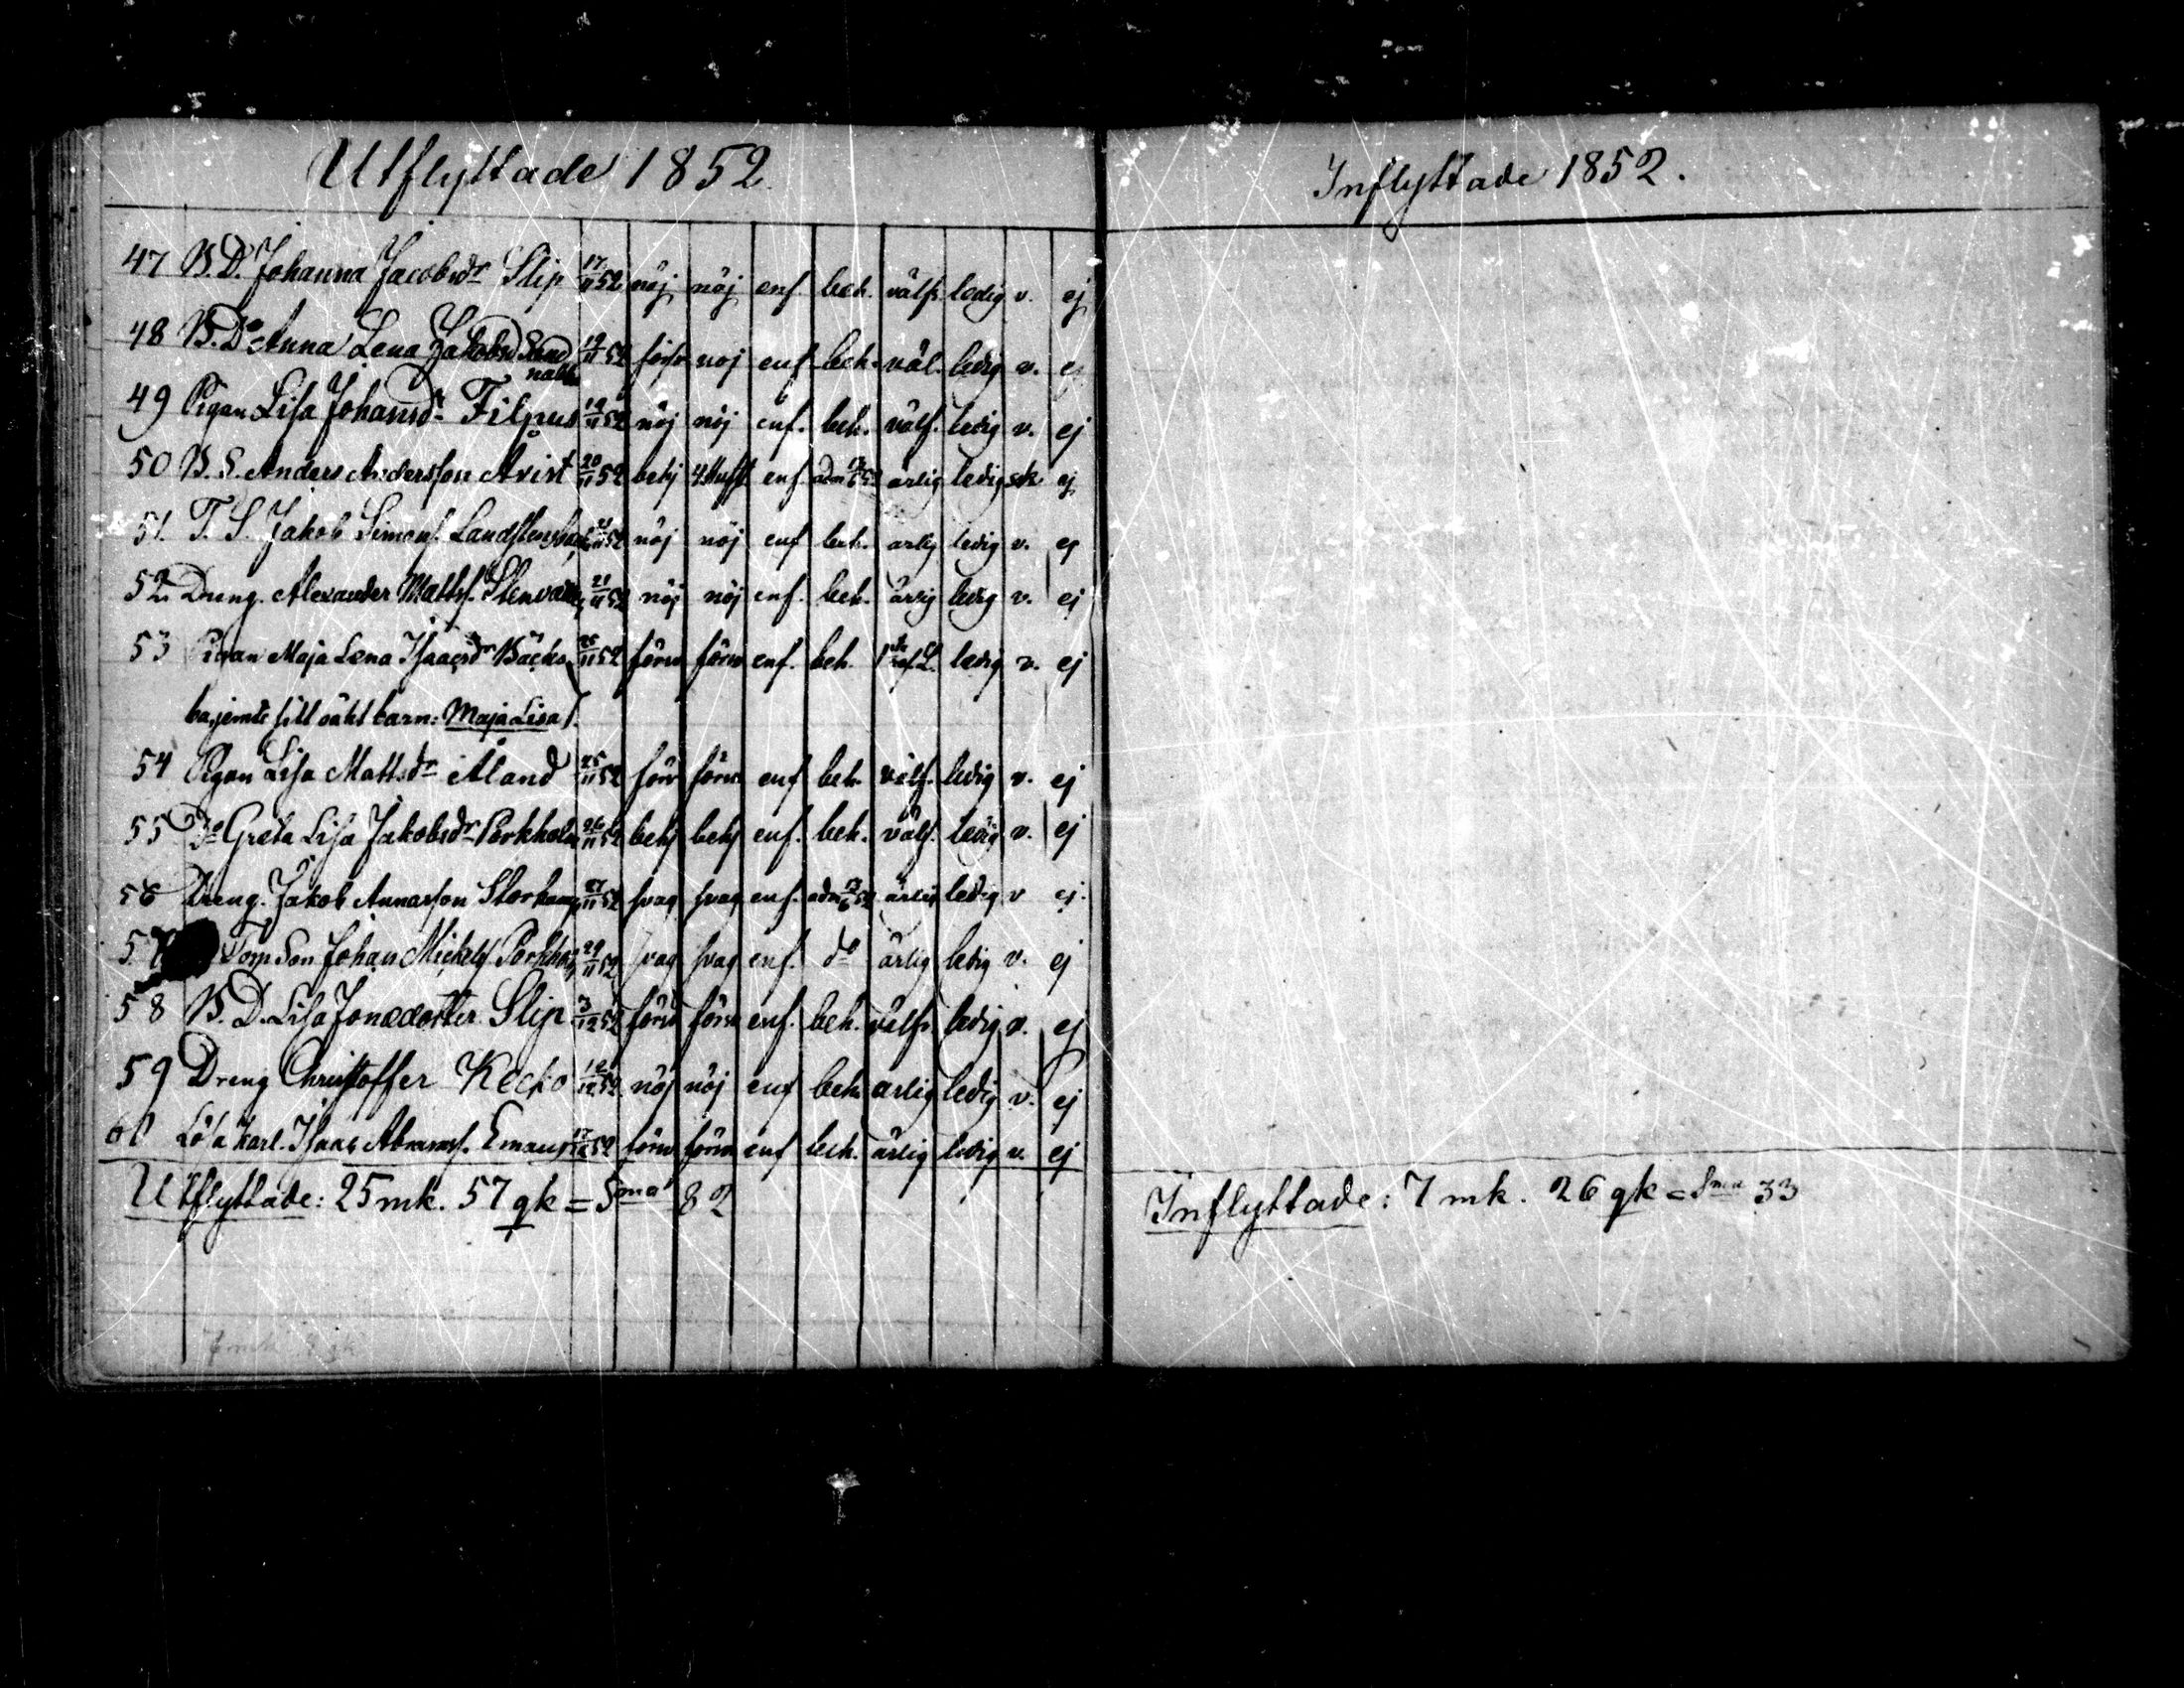 Utflyttade 1852
47 B. D. Johanna Jacobsdr Slip 17/11 52 nöj nöj enf. bek. välfr. ledig v. ej
48 B. Dr Anna Lena Jakobsd Sand 19/11 52 förfv noj enf bek. väl. ledig v. ej
49 Pigan Lisa Johansdr Filpus 19/11 52 nöj nöj enf. bek. välf. ledig v. ej
50 B. S. Anders Andersson Avist 20/11 52 behj enf. adm ärlig ledig ej
51. T. S. Jakob Simons. 52 nöj nöj enf bek. arlig ledig v. ej
52. Dreng. Alexander Mattss. 21/11 52 nöj nöj enf. bek. ärlig ledig v. ej
53 Pigan Maja Lena Isaacsdr Backa 25/11 52 försv försv enf. bek. ledig v. ej
barn: Maja Lisa
54 Pigan Lisa Mattsdr Åland 25/11 52 försv försv enf bek. välf. ledig v. ej
55 Do Greta Lisa Jakobsdr Porkholm 26/11 52 behj behj enf. bek. välf. ledig v. ej
56 Dreng. Jakob Annasson 27/11 52 svag svag enf. adm ärlig ledig v ej.
57 Son Johan Mickels. 29/11 52 svag svag enf. do ärlig ledig v. ej
58 B. D. Lisa Jonædotter Slip 3/12 52 försv försv enf. bek. välfr. ledig v. ej
59 Dreng Christoffer Kecko 52 nöj nöj enf bek. arlig ledig v. ej
60 Lösa karl. Isaac Abramss. Emaus 17/12 52 försv försv enf bek. ärlig ledig v. ej
Utflyttade: 25 mk. 57 qk = Sma 82
Inflyttade 1852.
Inflyttade: 7 mk. 26 qk = Sma 33